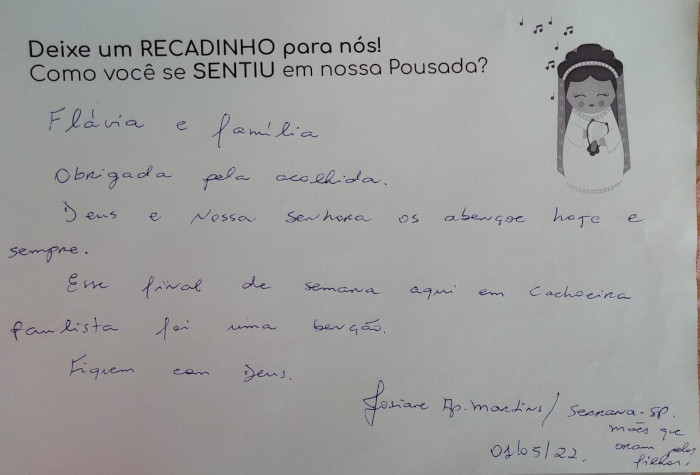 Deixe um RECADINHO para nós!
Como você se SENTIU em nossa Pousada?
Flávia e família
Obrigada pela acolhida.
Deus e Nossa Senhora os abençoe hoje e
sempre.
Esse final de semana aqui em Cachoeira
Paulista foi uma benção.
Fiquem com Deus.
Josiane Ap. Martins / Serrana-SP.
mães que
oram pelos
filhos.
01/05/22.